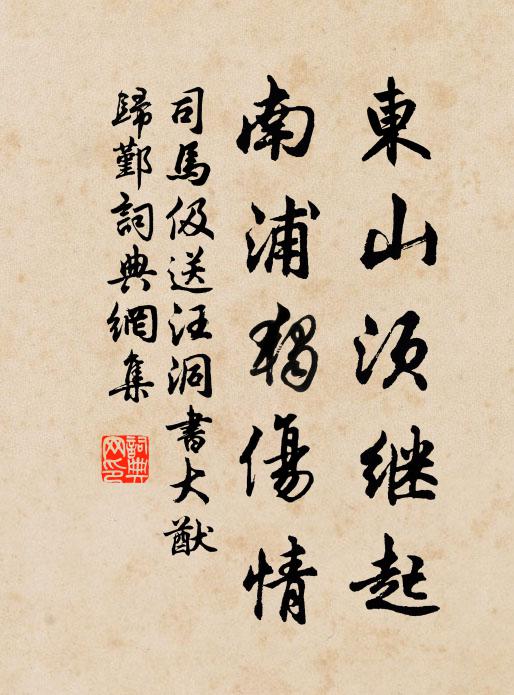 東山須继起
南浦獨傷情
司馬伋送汪洞書大猷
歸鄞詞典網集
詞典网印